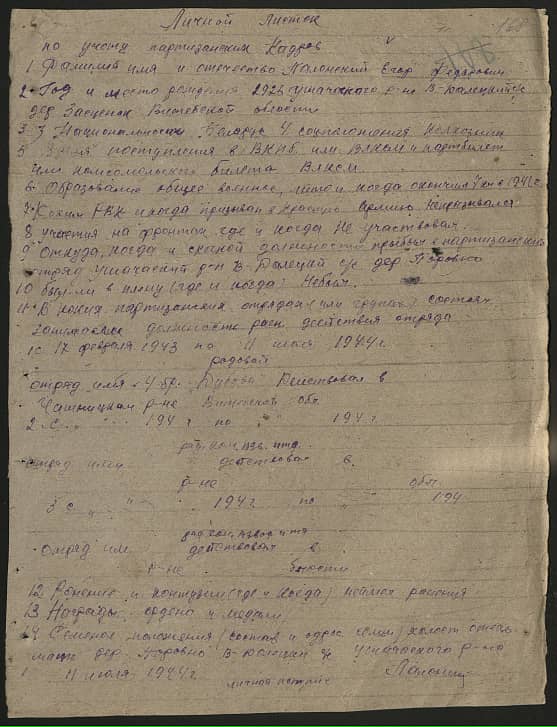 Личной листок
168
по учету партизанских Кадров
1 Фамилия имя и отечество Полонский Егор Федорович
2 Год и место рождения 1926 Ушачского р-не В-Долецкий с/с
дер Заеценок области
3 Национальность Беларус 4 соцположения Колхозник
5 Время поступления в ВКПб или ВЛКСМ и партбилет
или комсомольского билета ВЛКСМ
6 Образование общее военное, и когда окончил 7 кл в 1941 г
7 Каким РВК и когда призван в красную Армию Непризывался
8 участия на фронтах где и когда Не участвовал
9 Откуда, когда и с какой должности прибыл в партизанский
отряд Ушачский р-н В-Долецкий с/с дер
10 был-ли в плену (где и когда) Небыл
11 В каких партизанских отрядах или группах состоял
занимаемые должность раен действия отряда
1 с 17 февраля 1943 по 11 июля 1944 г
рядовой
отряд 4 бр. Действовал в
Чашницком р-не Витебской обл
2 С " " 194 г по " " 194 г
отряд им действовал в
р-не обл
3 с " " 194 г по " 194
отряд им действовал в
р-не области
12 Ранение и контузии (где и когда) неимел ранения
13 Награды ордена и медали
14 Семейное положения (состав и адрес семьи) холост отец
мать дер. В-Долецкий с/с Ушачского р-на
11 июля 1944 г
личной подпись